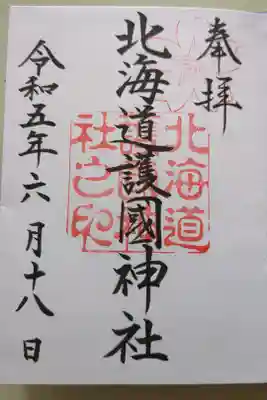 奉拝
北海道護國神社
北海道護國神社之印
令和五年六月十八日